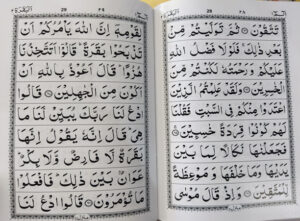 تَتَّقُوْنَ ۝ ثُمَّ تَوَلَّيْتُمْ مِّنْۢ
بَعْدِ ذٰلِكَ ۚ فَلَوْلَا فَضْلُ اللّٰهِ
عَلَيْكُمْ وَرَحْمَتُهٗ لَكُنْتُمْ مِّنَ
الْخٰسِرِيْنَ ۝ وَلَقَدْ عَلِمْتُمُ الَّذِيْنَ
اعْتَدَوْا مِنْكُمْ فِي السَّبْتِ فَقُلْنَا
لَهُمْ كُوْنُوْا قِرَدَةً خٰسِـِٕيْنَ ۝
فَجَعَلْنٰهَا نَكَالًا لِّمَا بَيْنَ
يَدَيْهَا وَمَا خَلْفَهَا وَمَوْعِظَةً
لِّلْمُتَّقِيْنَ ۝ وَاِذْ قَالَ مُوْسٰى
29 ٢٩
لِقَوْمِهٖٓ اِنَّ اللّٰهَ يَاْمُرُكُمْ اَنْ
تَذْبَحُوْا بَقَرَةً ؕ قَالُوْٓا اَتَتَّخِذُنَا
هُزُوًا ؕ قَالَ اَعُوْذُ بِاللّٰهِ اَنْ
اَكُوْنَ مِنَ الْجٰهِلِيْنَ ۝ قَالُوا
ادْعُ لَنَا رَبَّكَ يُبَيِّنْ لَّنَا مَا
هِيَ ؕ قَالَ اِنَّهٗ يَقُوْلُ اِنَّهَا
بَقَرَةٌ لَّا فَارِضٌ وَّلَا بِكْرٌ ؕ
عَوَانٌۢ بَيْنَ ذٰلِكَ ؕ فَافْعَلُوْا
مَا تُؤْمَرُوْنَ ۝ قَالُوا ادْعُ لَنَا